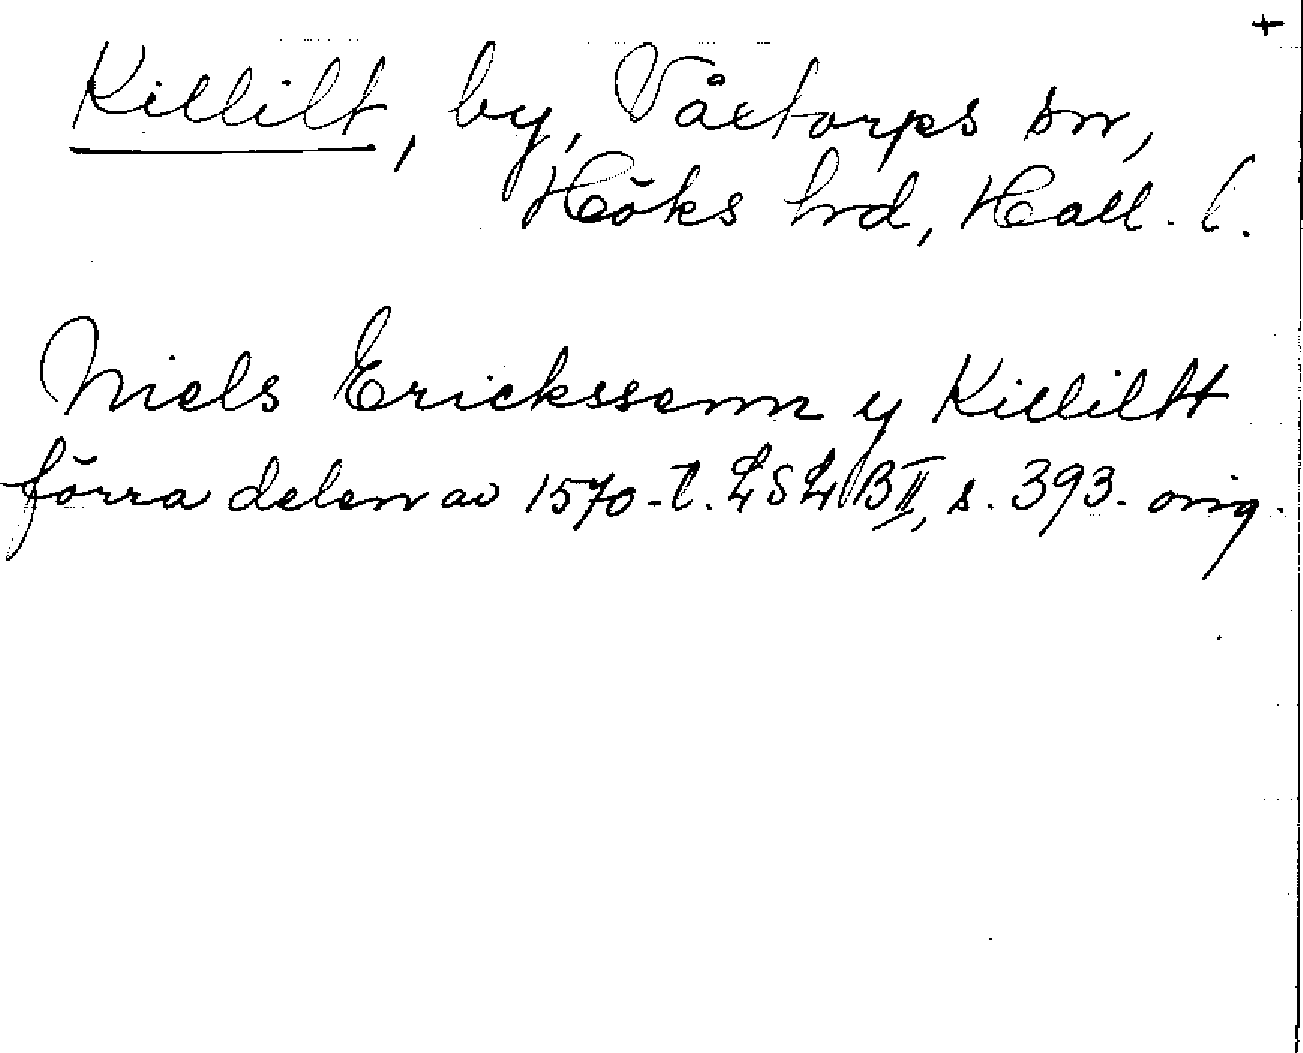 +
Killilt, by, Våxtorps sn,
Höks hrd, Hall. l.
Niels Erickssenn y Killiltt
förra delen av 1570-t. LSLB II, s. 393. orig.